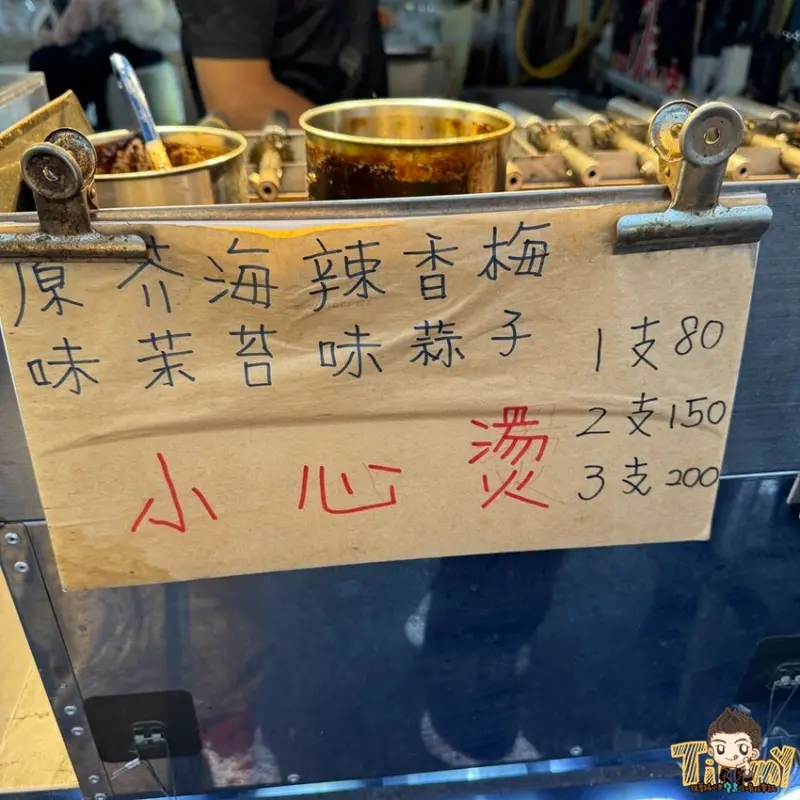 原味
芥茉
海苔
辣味
香蒜
梅子
1支80
2支150
3支200
小心燙